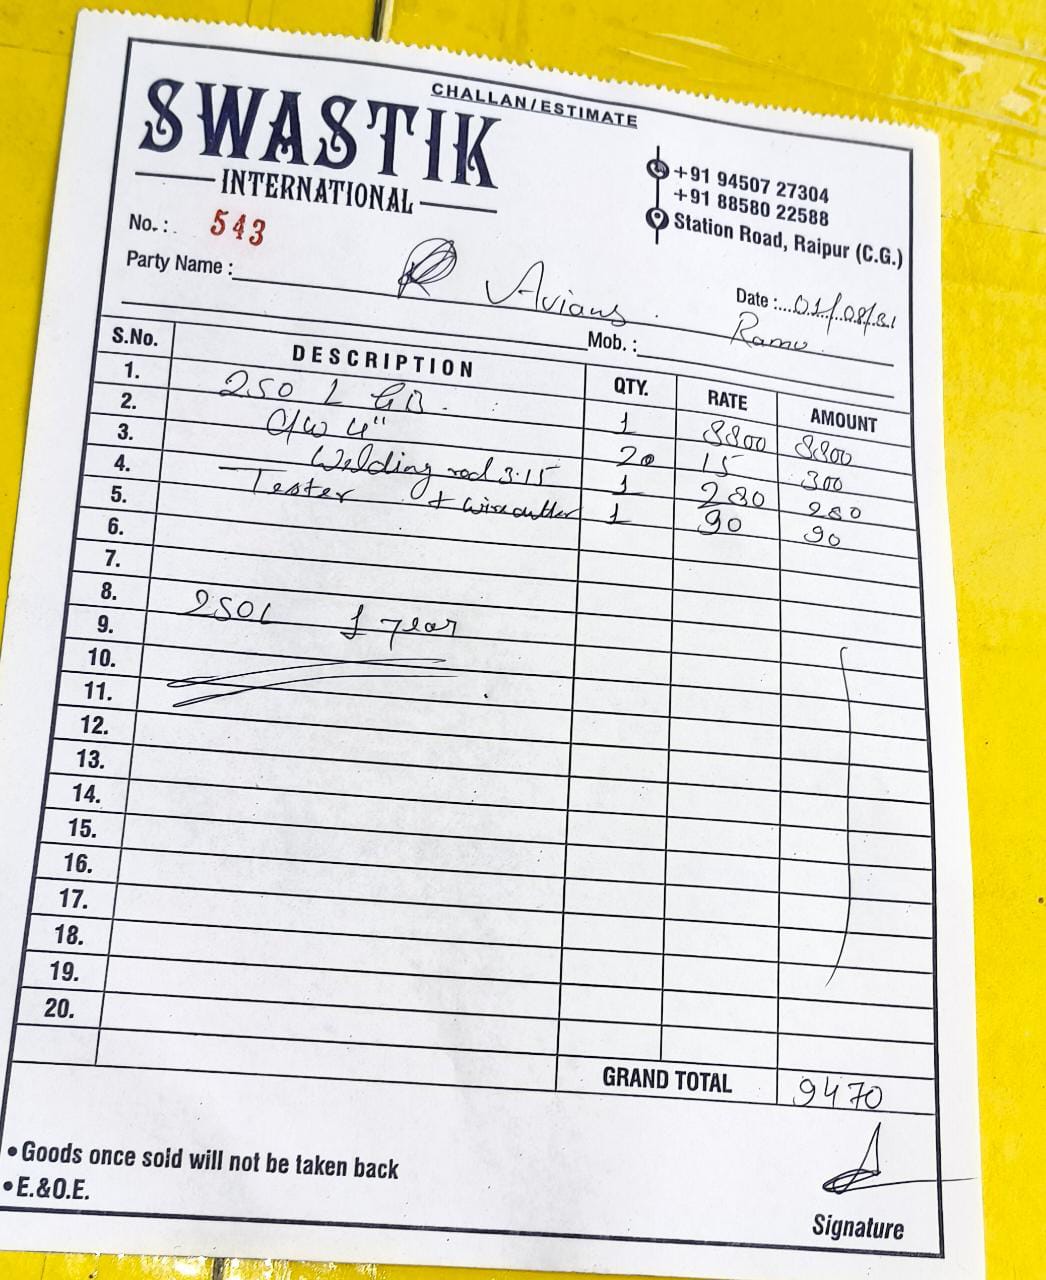 CHALLAN/ESTIMATE
SWASTIK
INTERNATIONAL
+91 94507 27304
+91 88580 22588
Station Road, Raipur (C.G.)
No.: 543
Date : 01/08/21
Party Name : Avians
Mob. : Ramu
S.No. DESCRIPTION QTY. RATE AMOUNT
1. 250 L GB. 1 8800 8800
2. C/W 4" 20 15 300
3. Welding rod 3.15 1 280 280
4. Tester + wire cutter 1 90 90
5.
6.
7.
8. 250L 1 year
9.
10.
11.
12.
13.
14.
15.
16.
17.
18.
19.
20.
GRAND TOTAL 9470
• Goods once sold will not be taken back
• E.&O.E.
Signature